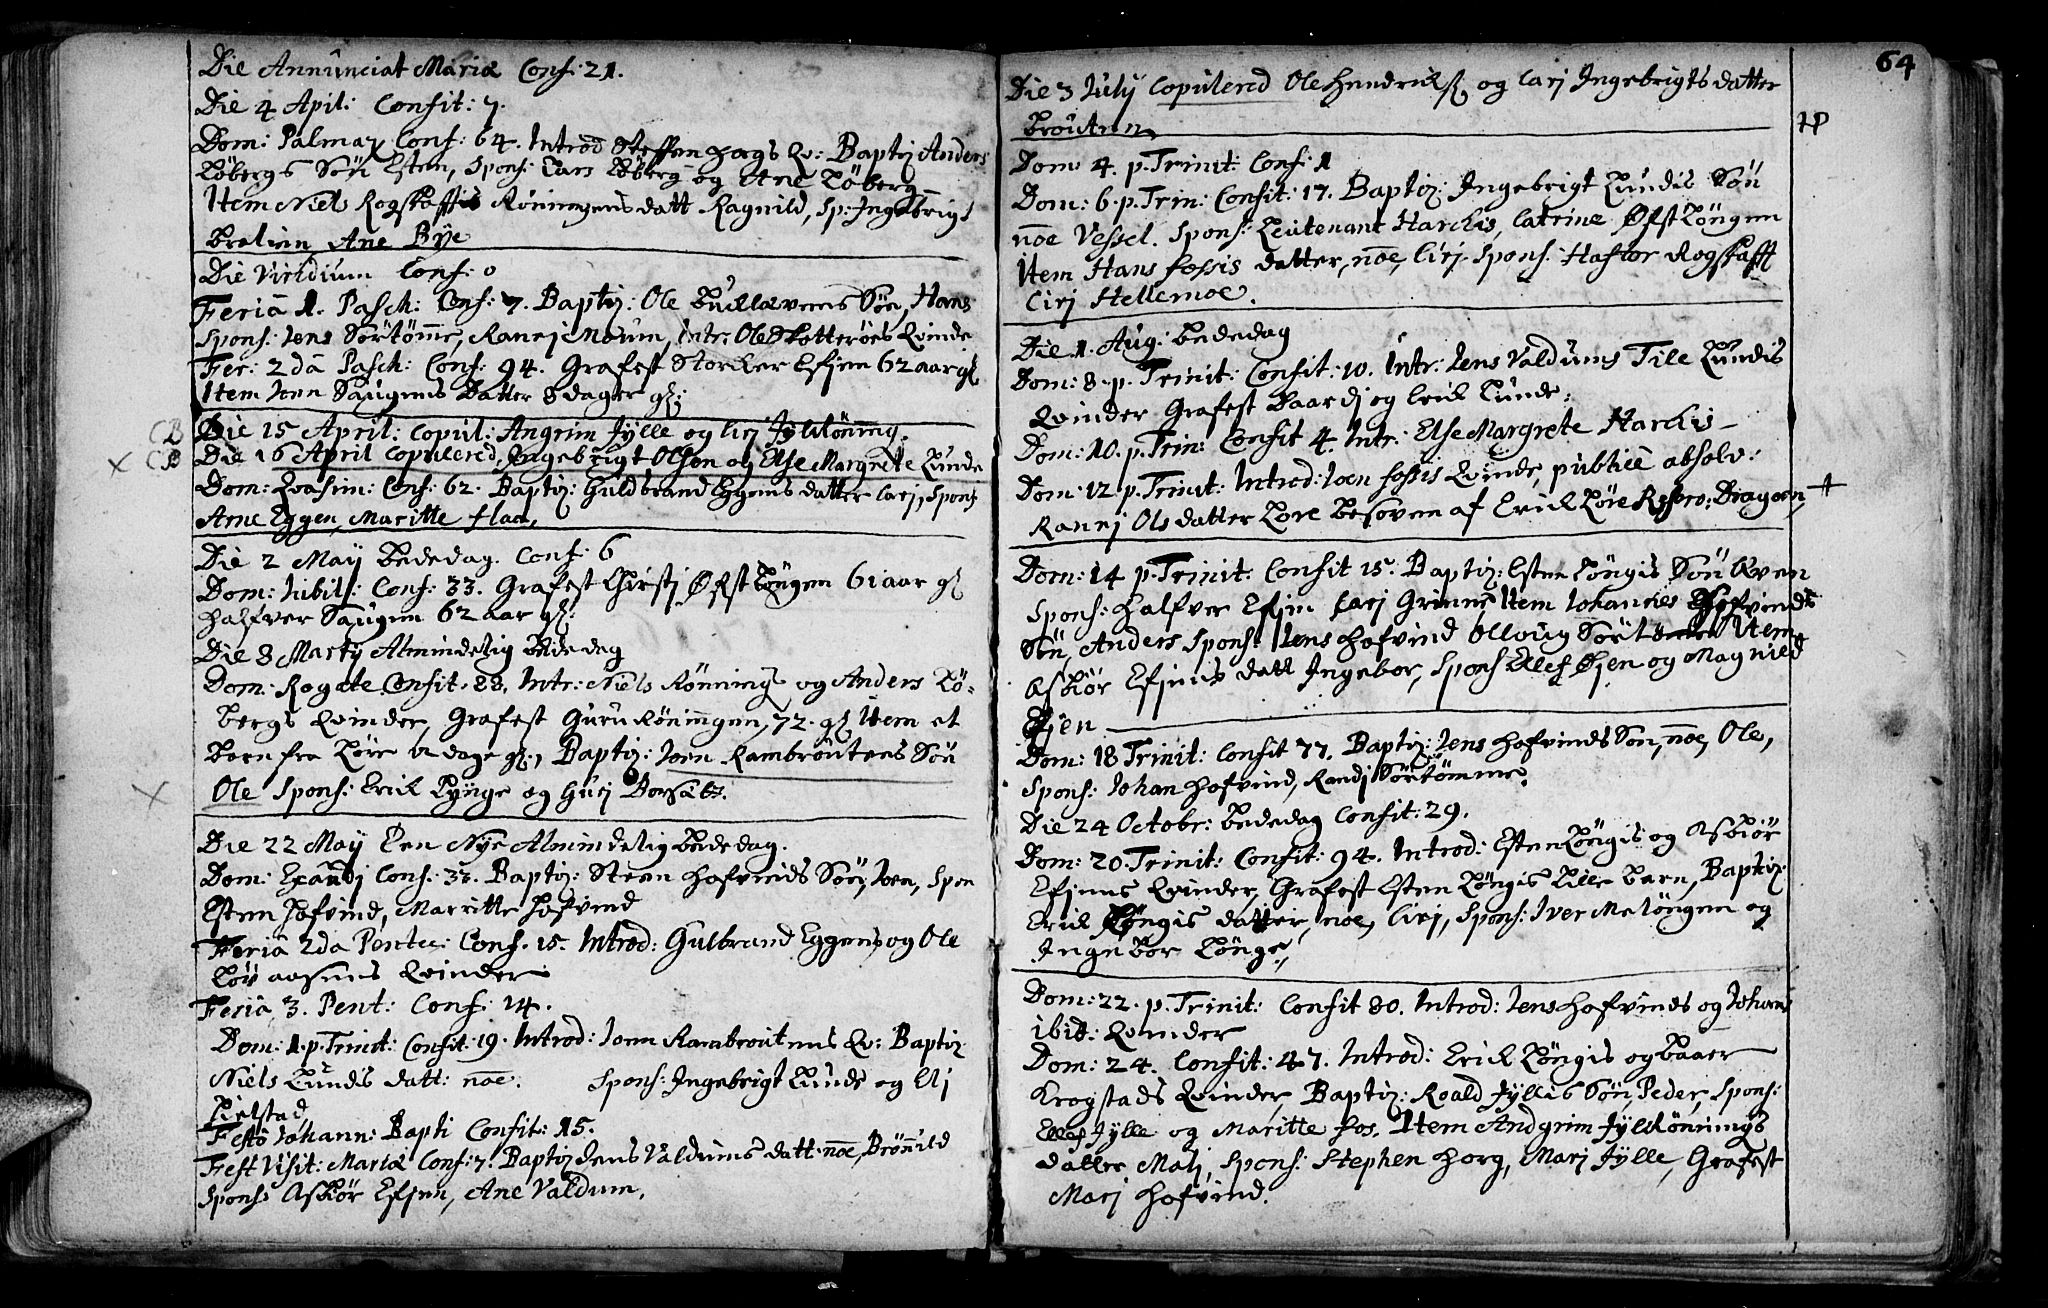 Die Annunciat Mariæ Conf: 21.
Die 4 April: Confit: 7.
Dom: Palmar Conf: 64. Introd Steffen horgs Qv: Baptiz Anders
Löbergs Sön Esten, Spons: Lars Löberg og Ane Löberg
Item Niels Rogstaffis Röningens datt Ragnild, Sp: Ingebrigt
Ane Bÿe
Die Viridium Conf: 0
Feria 1. Pasch: Conf: 7. Baptiz: Ole Sön, Hans
Spons: Jens Sörtömme, Ranej Moum, Intr: Ole Skotteröes Qvinde
Fer: 2da Pasch: Conf: 94. Grafest Storker Efjen 62 aar gl
Item Joen Saugens datter 8 dager gl:
CB Die 15 April: Copul: Angrim Jÿlle og Cirj Jÿlrönning.
x CB Die 16 April Copulered, Ingebrigt Olson og Else Margrete Lunde
Dom: Qvasim: Conf: 62. Baptiz: Guldbrand Eggens datter Carj, Spons
Arne Eggen, Maritte flaa,
Die 2 Maÿ Bededag. Conf: 6
Dom: Jubil: Conf: 33. Grafest Chirstj Øfst Löngen 61 aar gl
Halfver Saugen 62 aar gl:
Die 8 Martÿ Almindelig Bededag
Dom: Rogate Confit: 83. Intr: Niels Rönnings og Anders Lö-
bergs Qvinder, Grafest Guru Röningen, 72. gl Item et
Barn fra Löre dage gl:, Baptiz: Joen Rambroutens Sön
x Ole Spons: Erik Lÿnge og Gurj Borsæt.
Die 22 Maÿ Een Nÿe Almindelig Bededag.
Dom: Exaudj Conf: 33. Baptiz: Steen Hofvinds Sön, Joen, Spon
Esten Hofvind, Marritte Hofvind
Feria 2da Pentec: Conf: 15. Introd: Gulbrand Eggens og Ole
Löv aasens Qvinder
Feria 3. Pent: Conf: 14.
Dom: 1. p. Trinit: Confit: 19. Introd: Joen Rambroutens Qv: Baptiz
Niels Lundis datt: noe. Spons: Ingebrigt Lunde og Elj
Lielstad
Festo Johann: Bapti Confit: 15.
Fest Visit: Mariæ Conf: 7. Baptiz Jens Valdums datt. noe, Brönild
Spons: Asbiör Efjen, Ane Valdum,
64
Die 3 Julÿ Copulered Ole Hendrikss og Carj Ingebrigtsdatter
Brouten
Dom 4. p. Trinit: Conf: 1
Dom: 6. p. Trin: Confit: 17. Baptiz: Ingebrigt Lundis Sön
noe Vessel. Spons: Leutenant Harchis, Catrine Øfstlöngen
Item Hans fossis datter, noe, Cirj. Spons: Haftor Rogstaff
Cirj Hellemoe.
Die 1. Aug: Bededag
Dom: 8. p. Trinit: Confit: 10. Intr: Jens Valdums Tile Lundis
Qvinder Grafest Baardj og Erik Lunde:
Dom: 10. p. Trin: Confit 4. Intr: Else Margrete Harchis
Dom: 12 p. Trinit: Introd: Joen fossis Qvinde, publice absolv:
Ranej Olsdatter Løre Besoven af Erick Løre Reserv: Dragon,
Dom: 14 p. Trinit: Confit 15. Baptiz: Esten Löngis Sön Aven
Spons: Halfver Efjen Carj Grinne Item Johannes Hofvinds
Sön Anders Spons: Jens Hofvind Olloug Sörtømme Item
Asbiör Efjens datt Ingebor, Spons Ellef Øjen og Magnild
Øjen
Dom: 18 Trinit: Confit 77. Baptiz: Jens Hofvinds Sön, noe, Ole,
Spons: Johan Hofvind, Randj Sörtömme.
Die 24 Octobr: Bededag Confit: 29.
Dom: 20. Trinit: Confit: 94. Introd: Esten Löngis og Asbiör
Efjens Qvinder, Grafest Esten Löngis Lille Barn, Baptiz:
Erik Löngis datter, noe, Cirj, Spons: Iver Melöngen og
Ingebor Lönge,
Dom: 22. p. Trinit: Confit 80. Introd: Jens Hofvinds og Johans
ibid: Qvinder
Dom: 24. Confit: 47. Introd: Erik Löngis og Baaer
Krogstads Qvinder, Baptiz: Roald Jÿllis Sön, Peder, Spons:
Ellef Jÿlle og Maritte fos. Item Andgrim Jÿlrönnings
datter Malj, Spons: Stephen Horg, Marj Jÿlle, Grafest
Marj Hofvind.